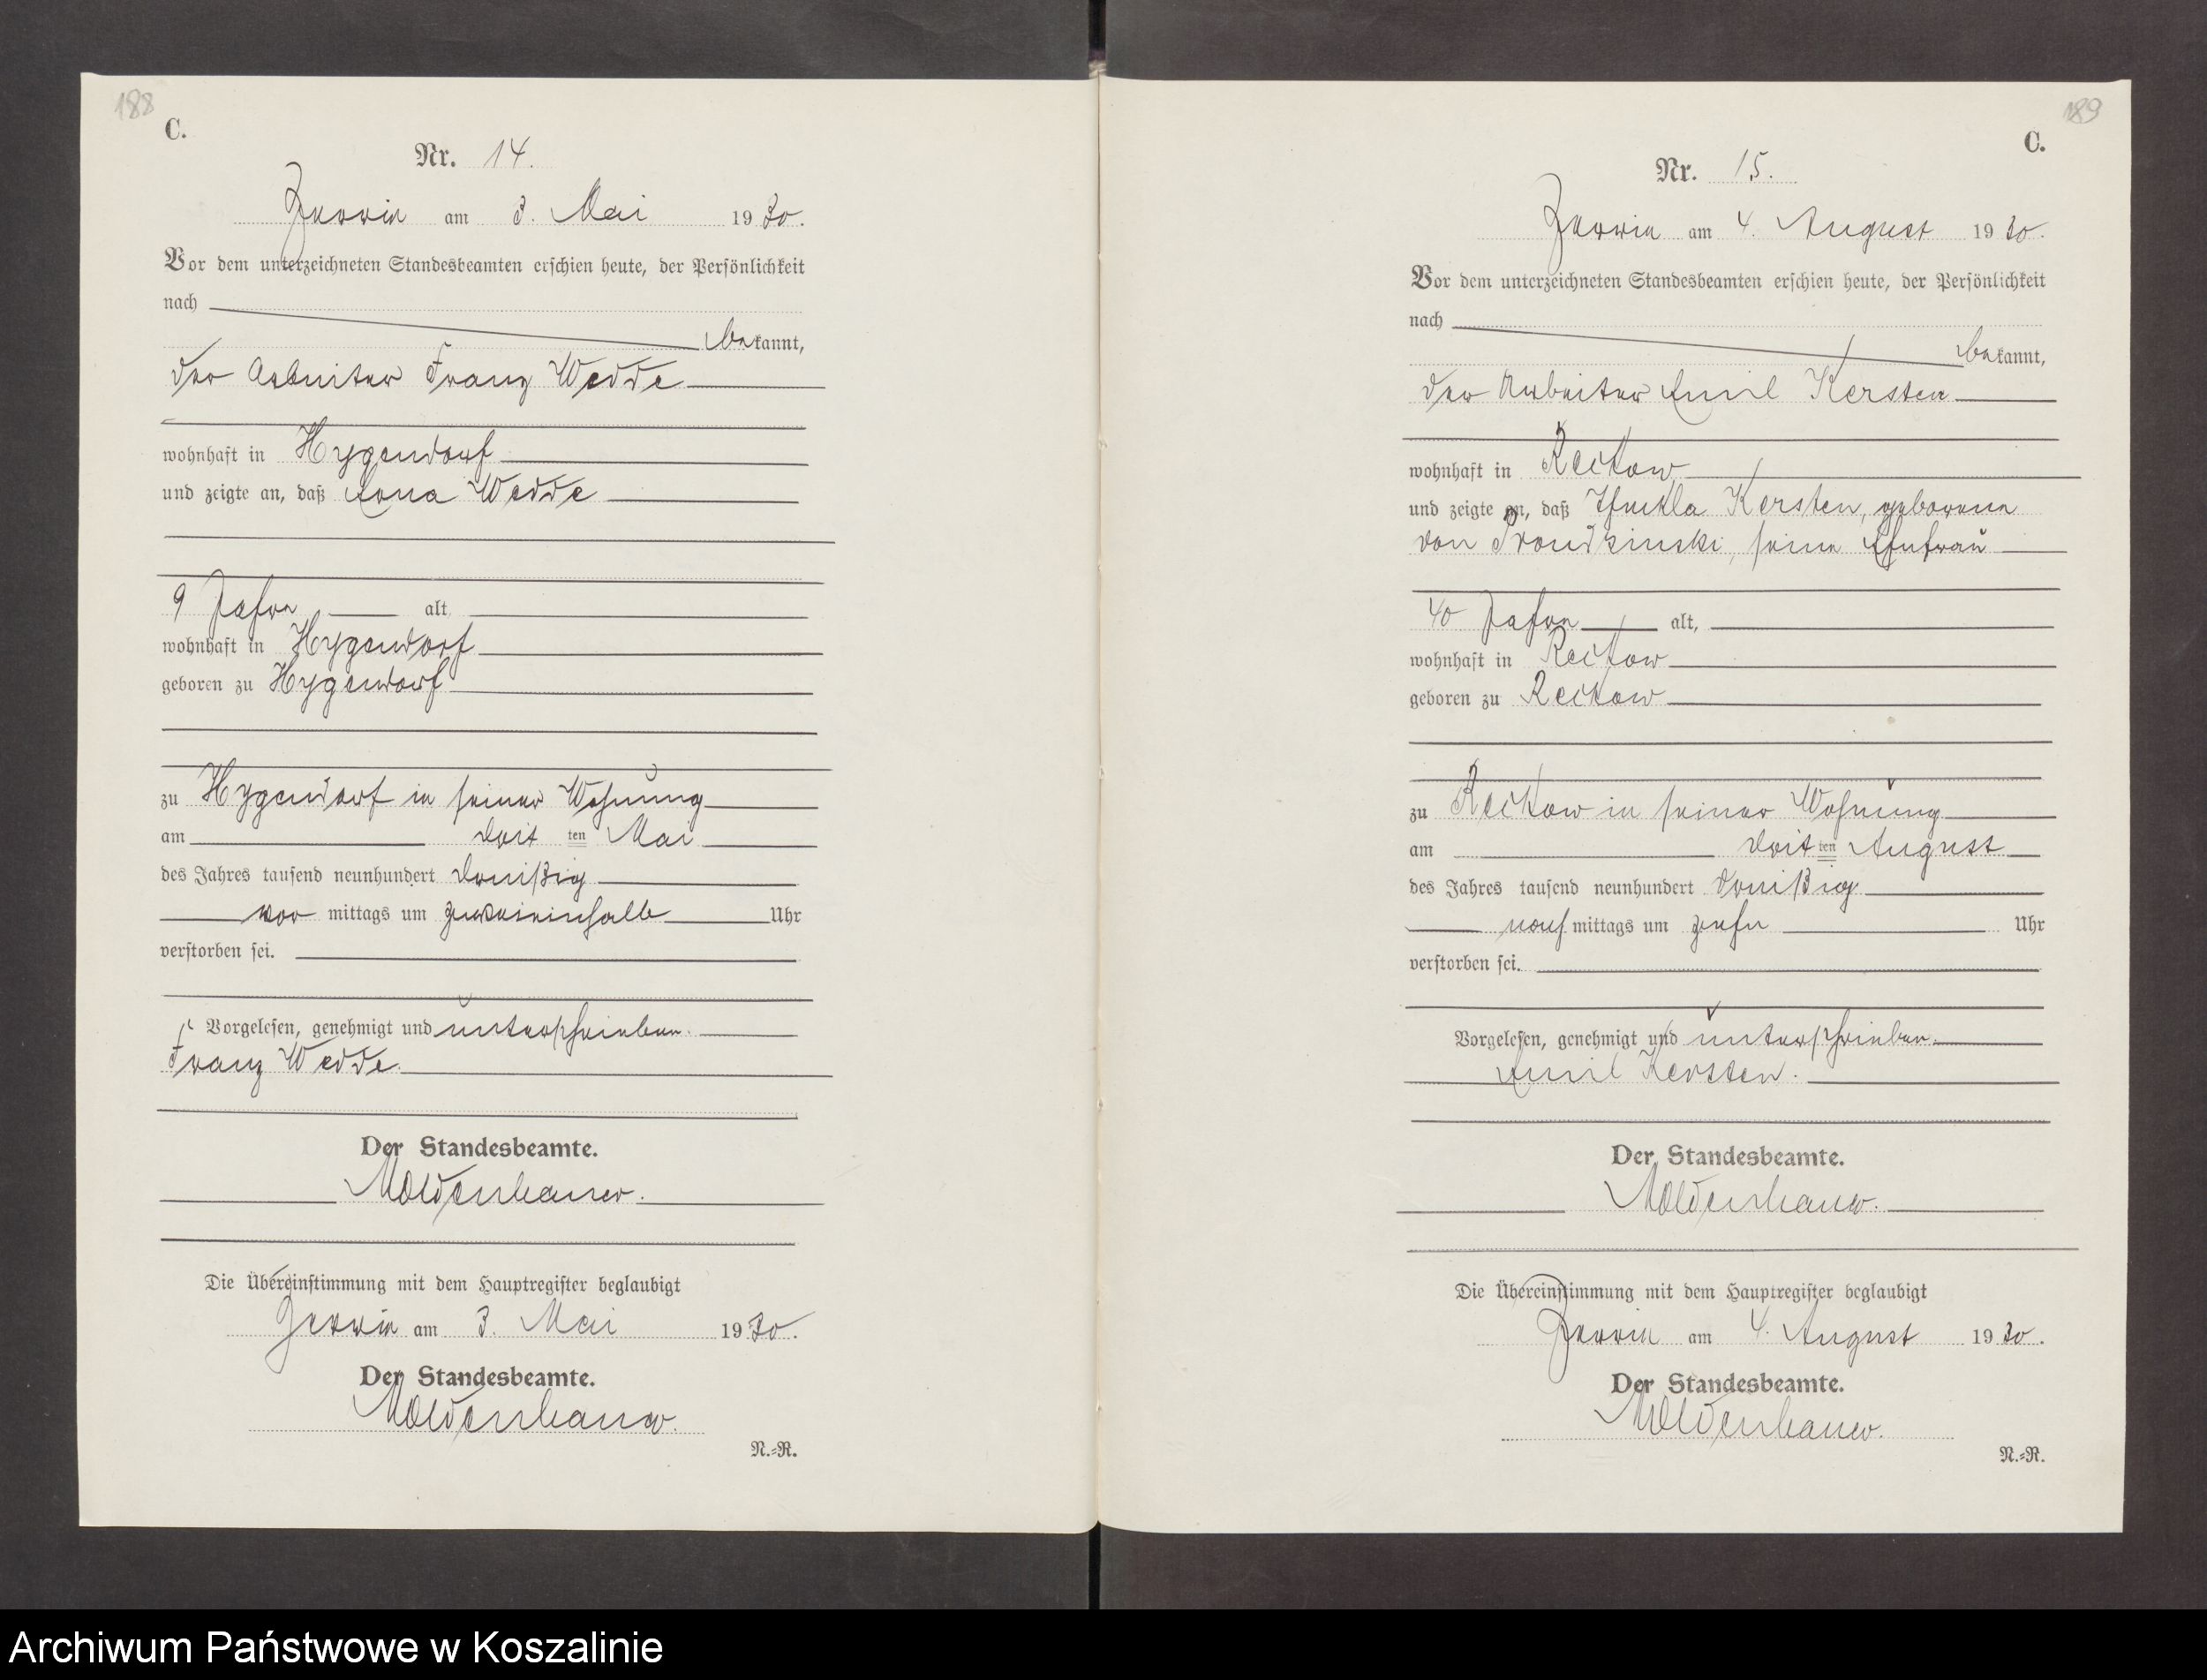 188
C.
Nr. 14.
Zerrin am 3. Mai 1930.
Vor dem unterzeichneten Standesbeamten erschien heute, der Persönlichkeit
nach
bekannt,
der Arbeiter Franz Wedde
wohnhaft in Hygendorf
und zeigte an, daß Erna Wedde
9 Jahre alt
wohnhaft in Hygendorf
geboren zu Hygendorf
zu Hygendorf in seiner Wohnung
am drit ten Mai
des Jahres tausend neunhundert dreißig
vor mittags um zweieinhalb Uhr
verstorben sei.
Vorgelesen, genehmigt und unterschrieben.
Franz Wedde
Der Standesbeamte.
Moldenhauer.
Die Übereinstimmung mit dem Hauptregister beglaubigt
Zerrin am 3. Mai 1930.
Der Standesbeamte.
Moldenhauer.
N.=R.
189
C.
Nr. 15.
Zerrin am 4. August 1930.
Vor dem unterzeichneten Standesbeamten erschien heute, der Persönlichkeit
nach
bekannt,
der Arbeiter Emil Kersten
wohnhaft in Reckow
und zeigte an, daß Thekla Kersten, geborene
von Prondzinski, seine Ehefrau
40 Jahre alt,
wohnhaft in Reckow
geboren zu Reckow
zu Reckow in seiner Wohnung
am drit ten August
des Jahres tausend neunhundert dreißig
nach mittags um zehn Uhr
verstorben sei.
Vorgelesen, genehmigt und unterschrieben.
Emil Kersten.
Der Standesbeamte.
Moldenhauer.
Die Übereinstimmung mit dem Hauptregister beglaubigt
Zerrin am 4. August 1930.
Der Standesbeamte.
Moldenhauer.
N.=R.
Archiwum Państwowe w Koszalinie